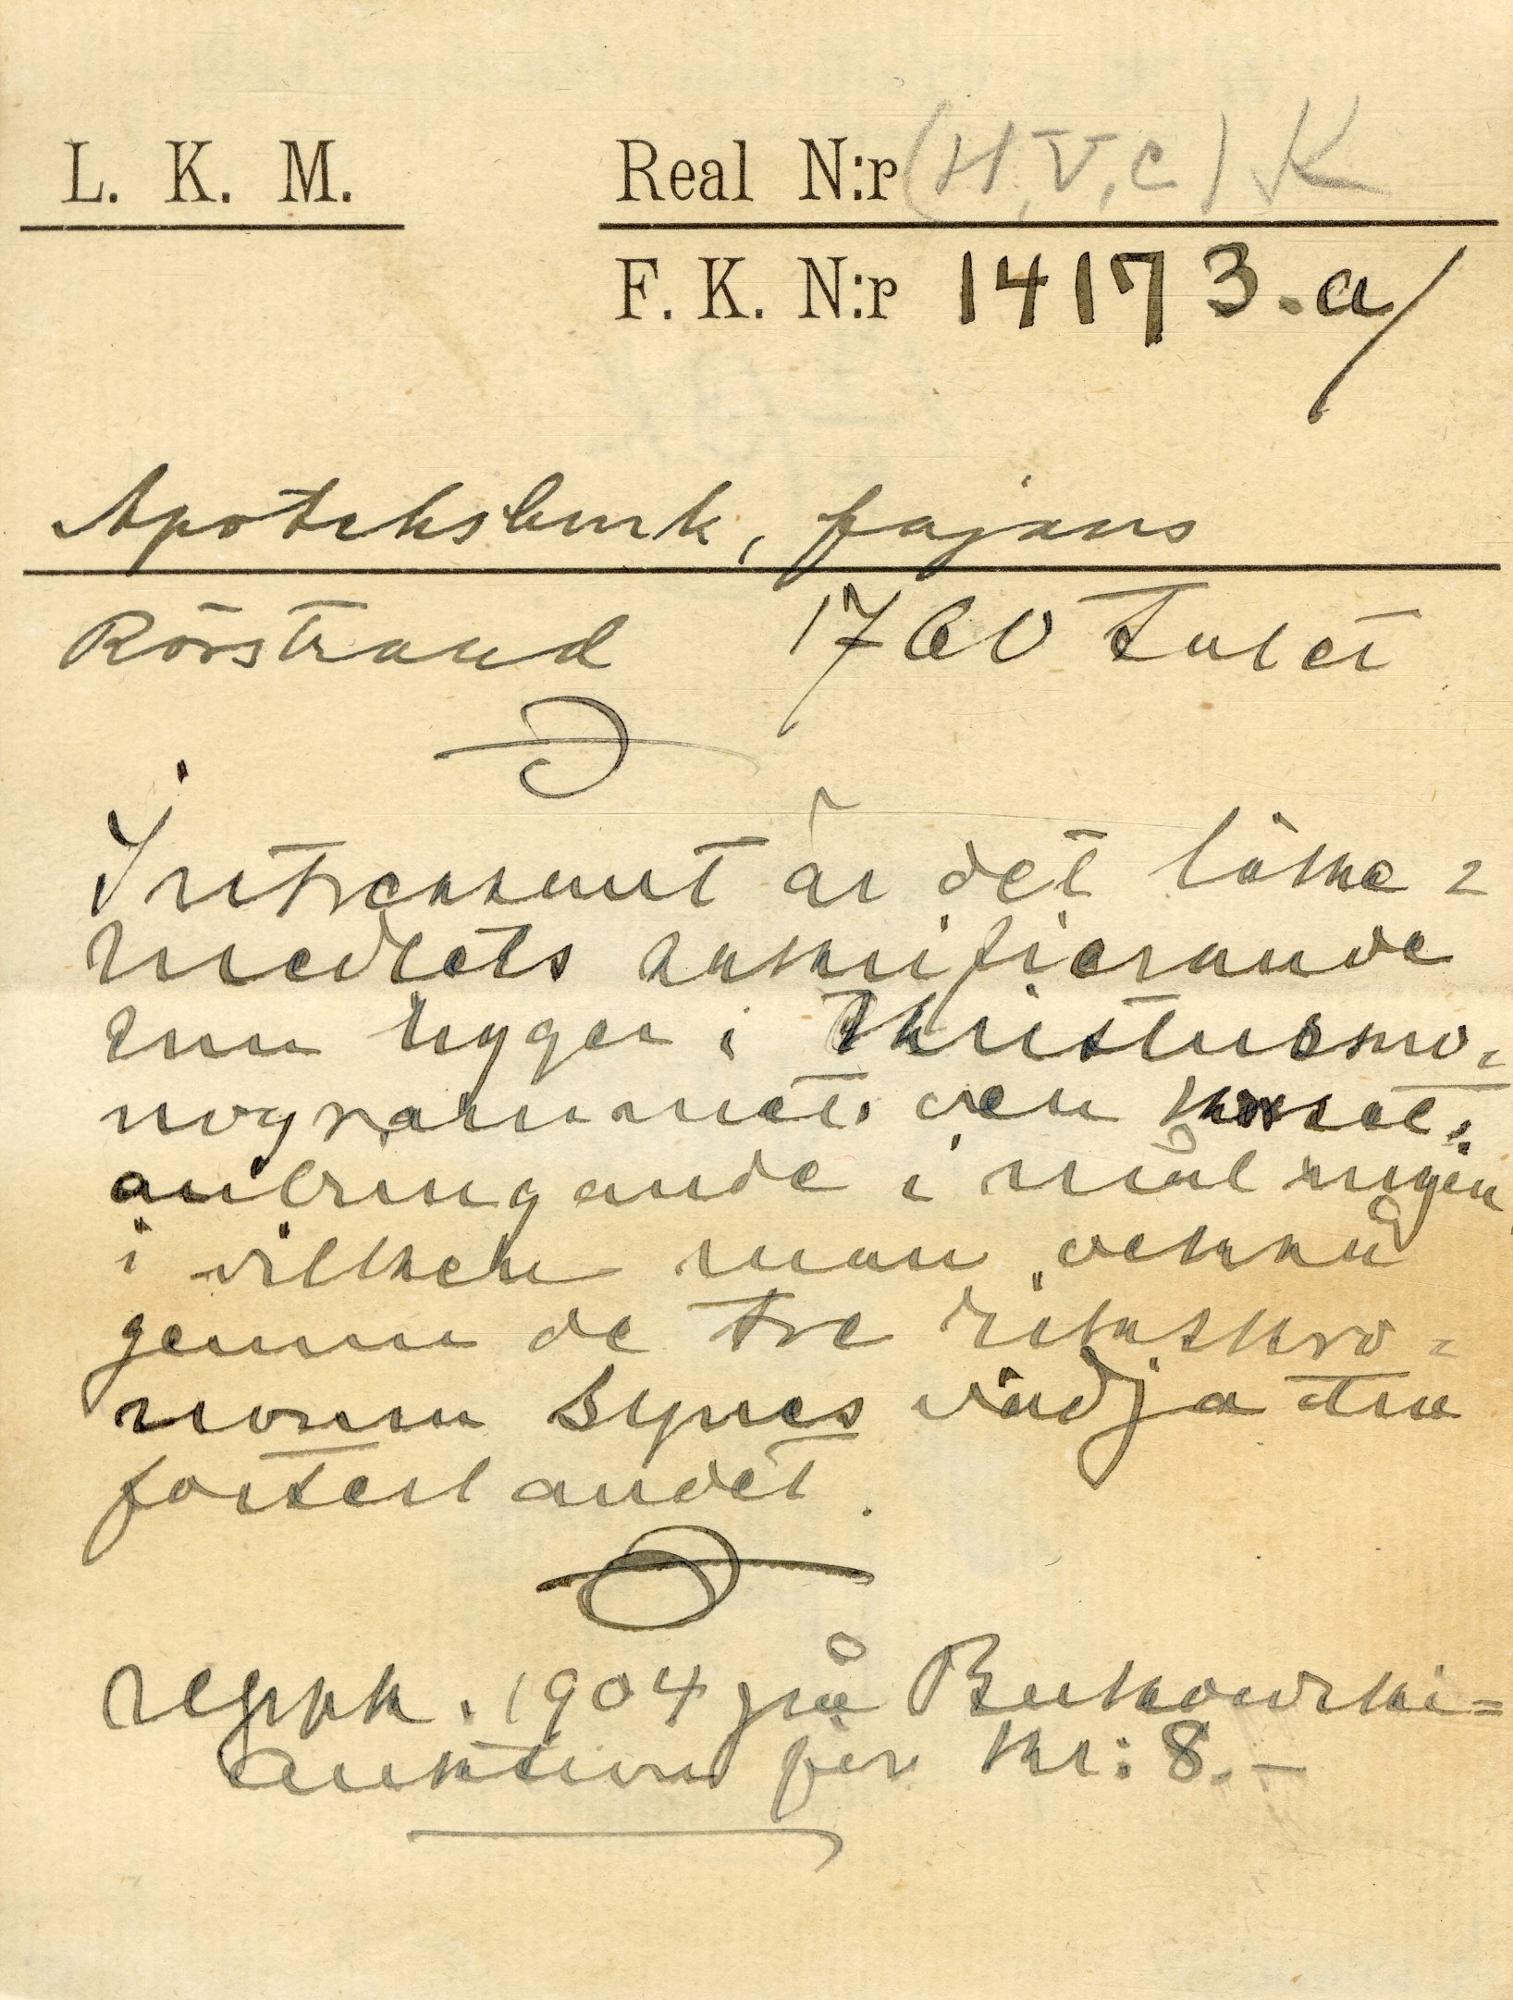 L. K. M.
Real N:r (H.V.C) K
F. K. N:r 14173.a/
Apoteksburk, fajans
Rörstrand 1760 talet
Intressant är det läke=
medlets sakrifierande
som ligger i Kristusmo=
nogrammet. och korset:
anbringande i målningen
i vilken man också
genom de tre rikskro=
norna synes vädja till
fosterlandet.
repk. 1904 på Bukowski=
auktion för kr: 8.-